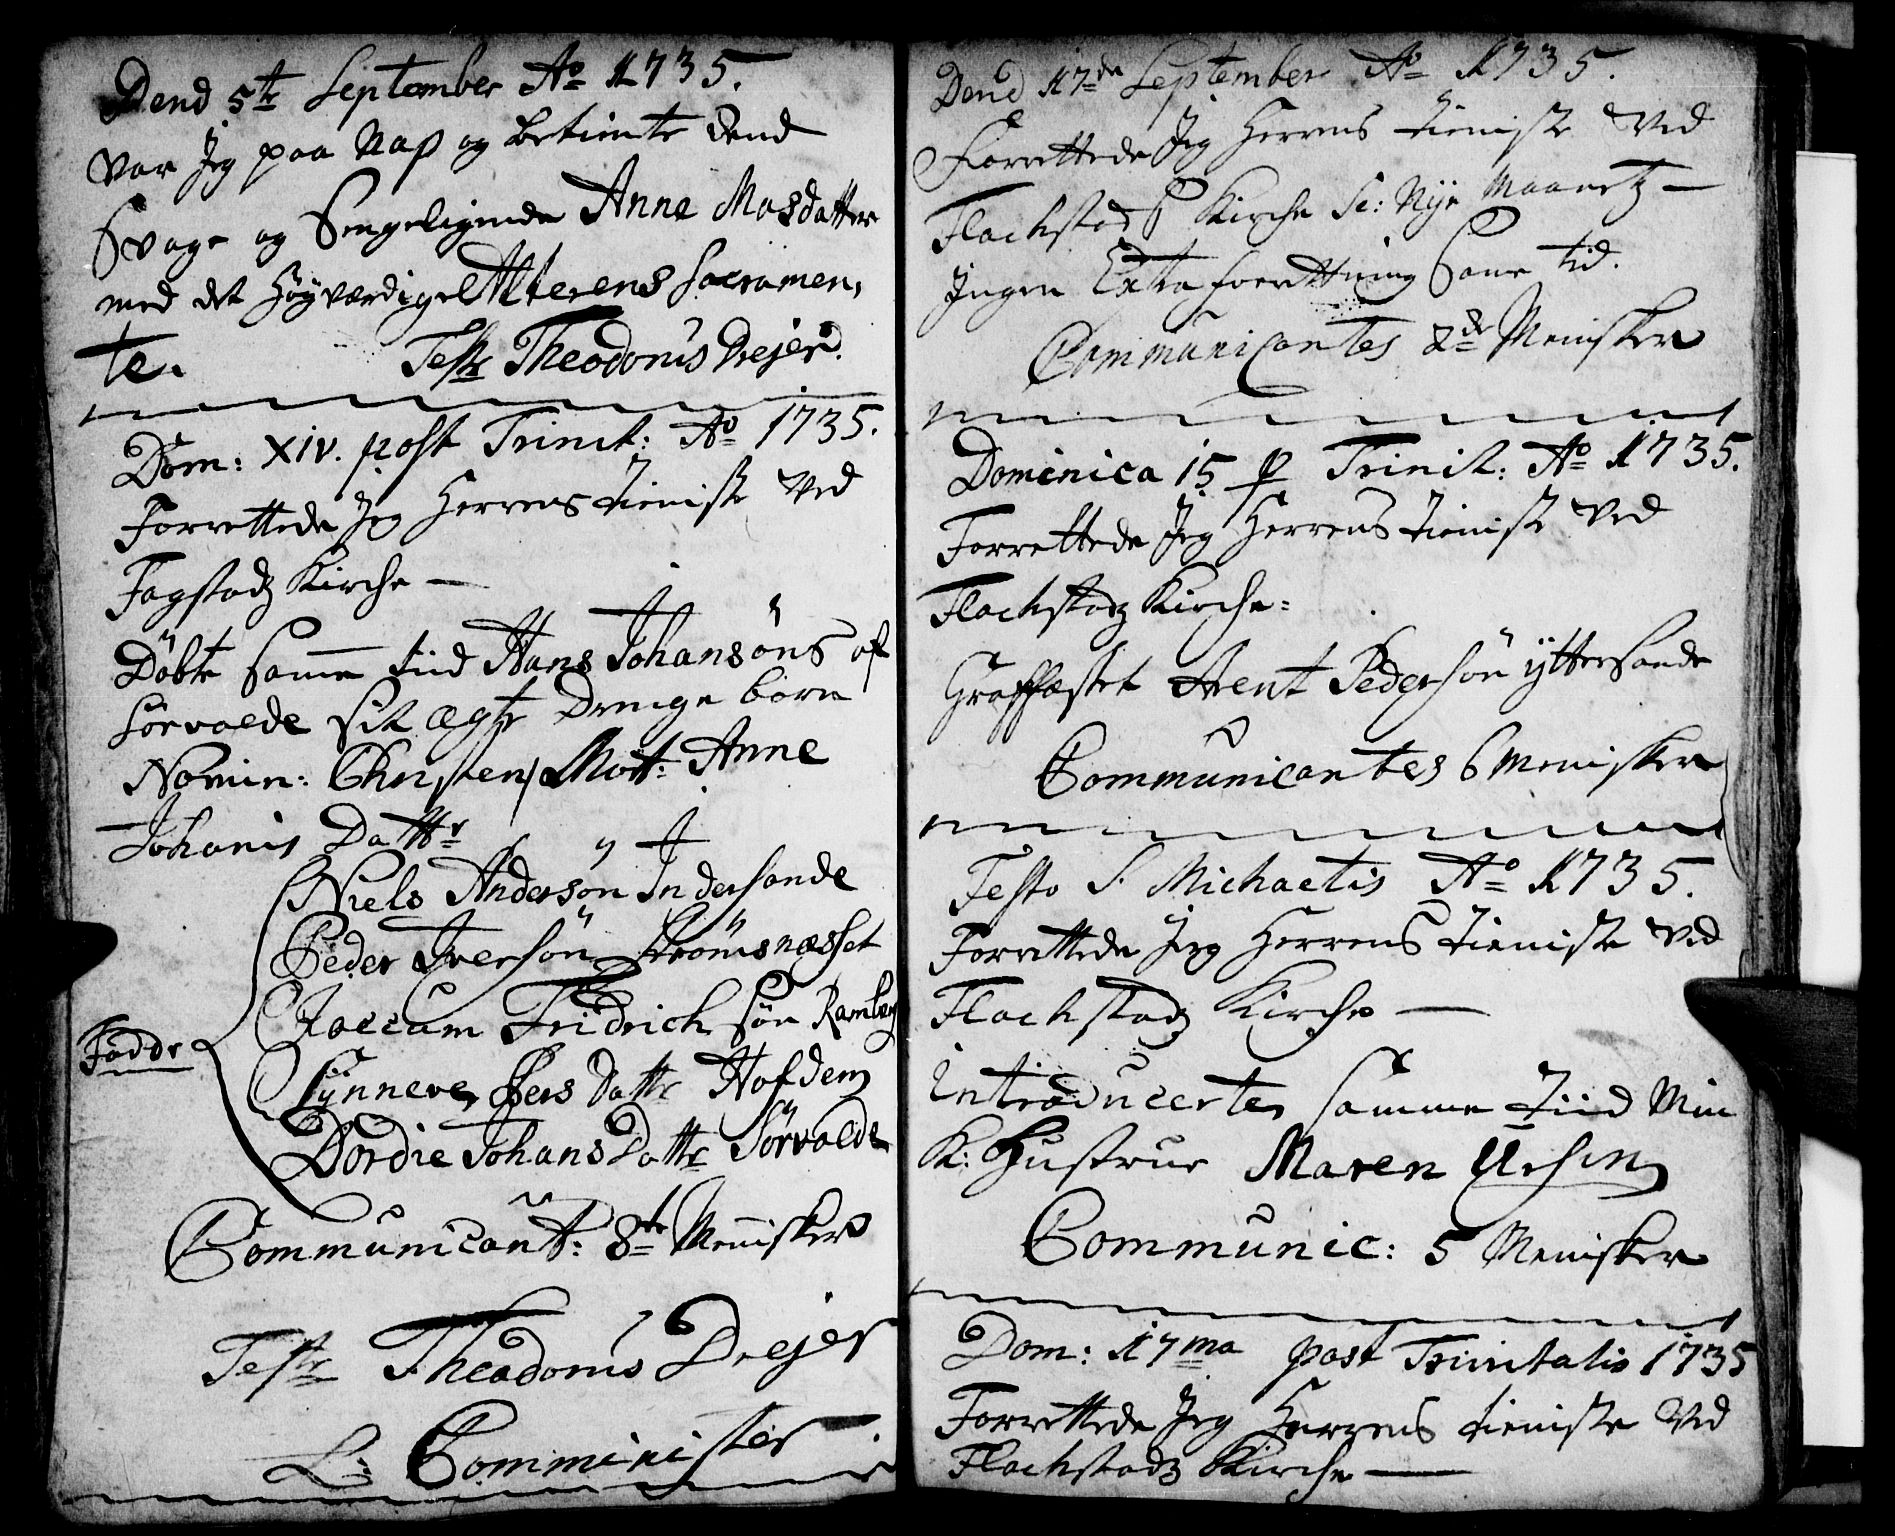 Dend 5te September Ao 1735.
Var Jeg paa Nap og betiente dend
Svage og Sengeliggende Anne Masdatter
med det Høyværdige Alterens Sacramen,
te. Teste Theodorus Drejer.
Dom: XIV. post Trinit: Ao 1735.
Forrettede Jeg Herrens tieniste Ved
Fagstadz Kirche —
Döbte samme tiid Hans Johansöns af
Sörvaede sit ægte Drenge børn
Nomin: Christen, Mott: Anne
Johanis Dattr
Niels Andersön Indersande
Peder Iversön Strömsnæsset
Joccum Fridrich sön Ramberg
Fadde
Synneve Pers Dattr Hofden
Dordie Johans Dattr Sörvaede
Communicant: 8te Mennisker
Teste Theodorus Drejer
L: Comminister.
Dend 17de September Ao 1735.
Forrettede Jeg Herrens tieniste Ved
Flachstads Kirche Sc: Nye Maanetz —
Ingen Extra forrettning Same tid.
Communicantes 2de Menisker
Dominica 15 p Trinit: Ao 1735.
Forrettede Jeg Herrens tieniste Ved
Flachstadz Kirche =
Graffæstet Arent Pedersön ÿttersande
Communicantes 6 Menisker
Festo S. Michaelis Ao 1735.
Forrettede Jeg Herrens tieniste Ved
Flachstadz Kirche —
Introducertes samme Tiid Min
K: Hustrue Maren Ursin
Communic: 5 Menisker
Dom: 17ma post Trinitatis 1735
Forrettede Jeg Herrens tieniste Ved
Flachstadz Kirche —